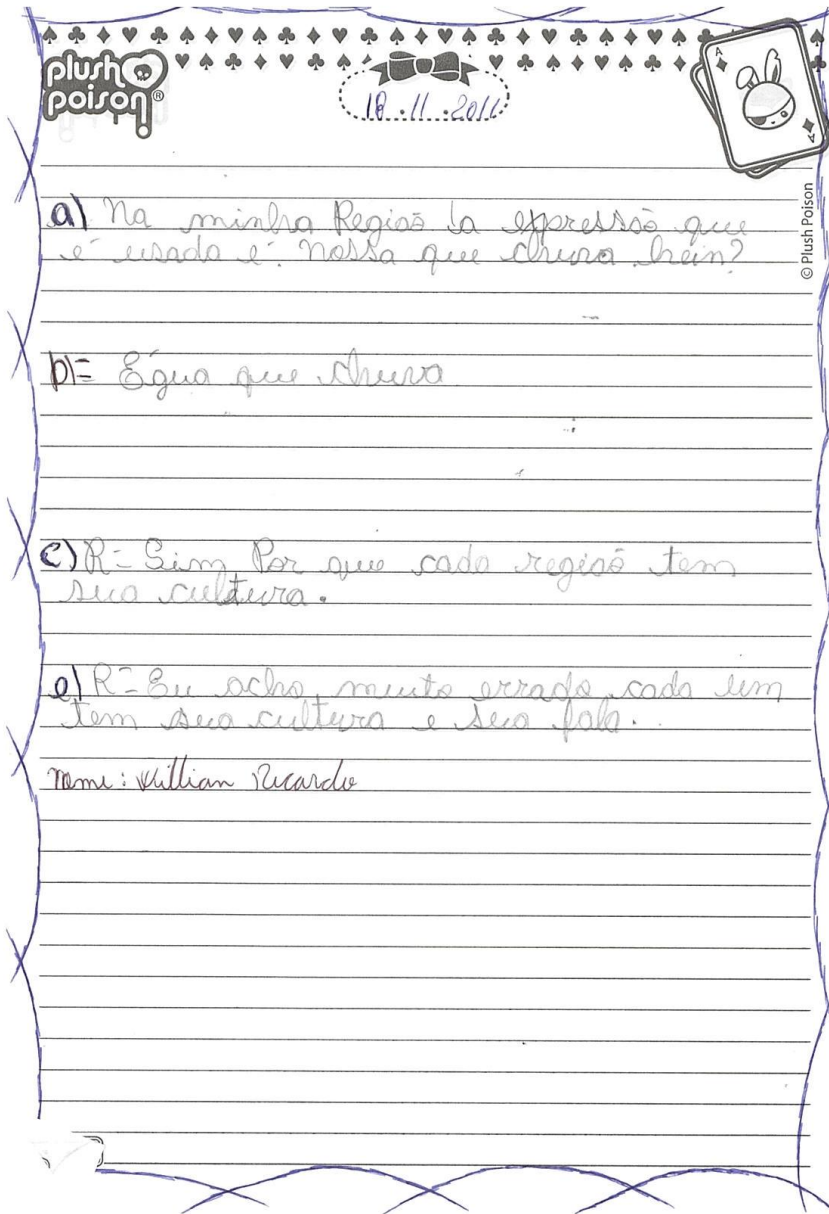 plush
poison®
18.11.2011
© Plush Poison
a) Na minha Regiaõ la expressaõ que
é usada é: nossa que chuva hein?
b)= Égua que chuva
c) R= Sim Por que cada regiaõ tem
sua cultura.
e) R= Eu acho muito errado cada um
tem sua cultura e sua fala.
nome: Willian Ricardo